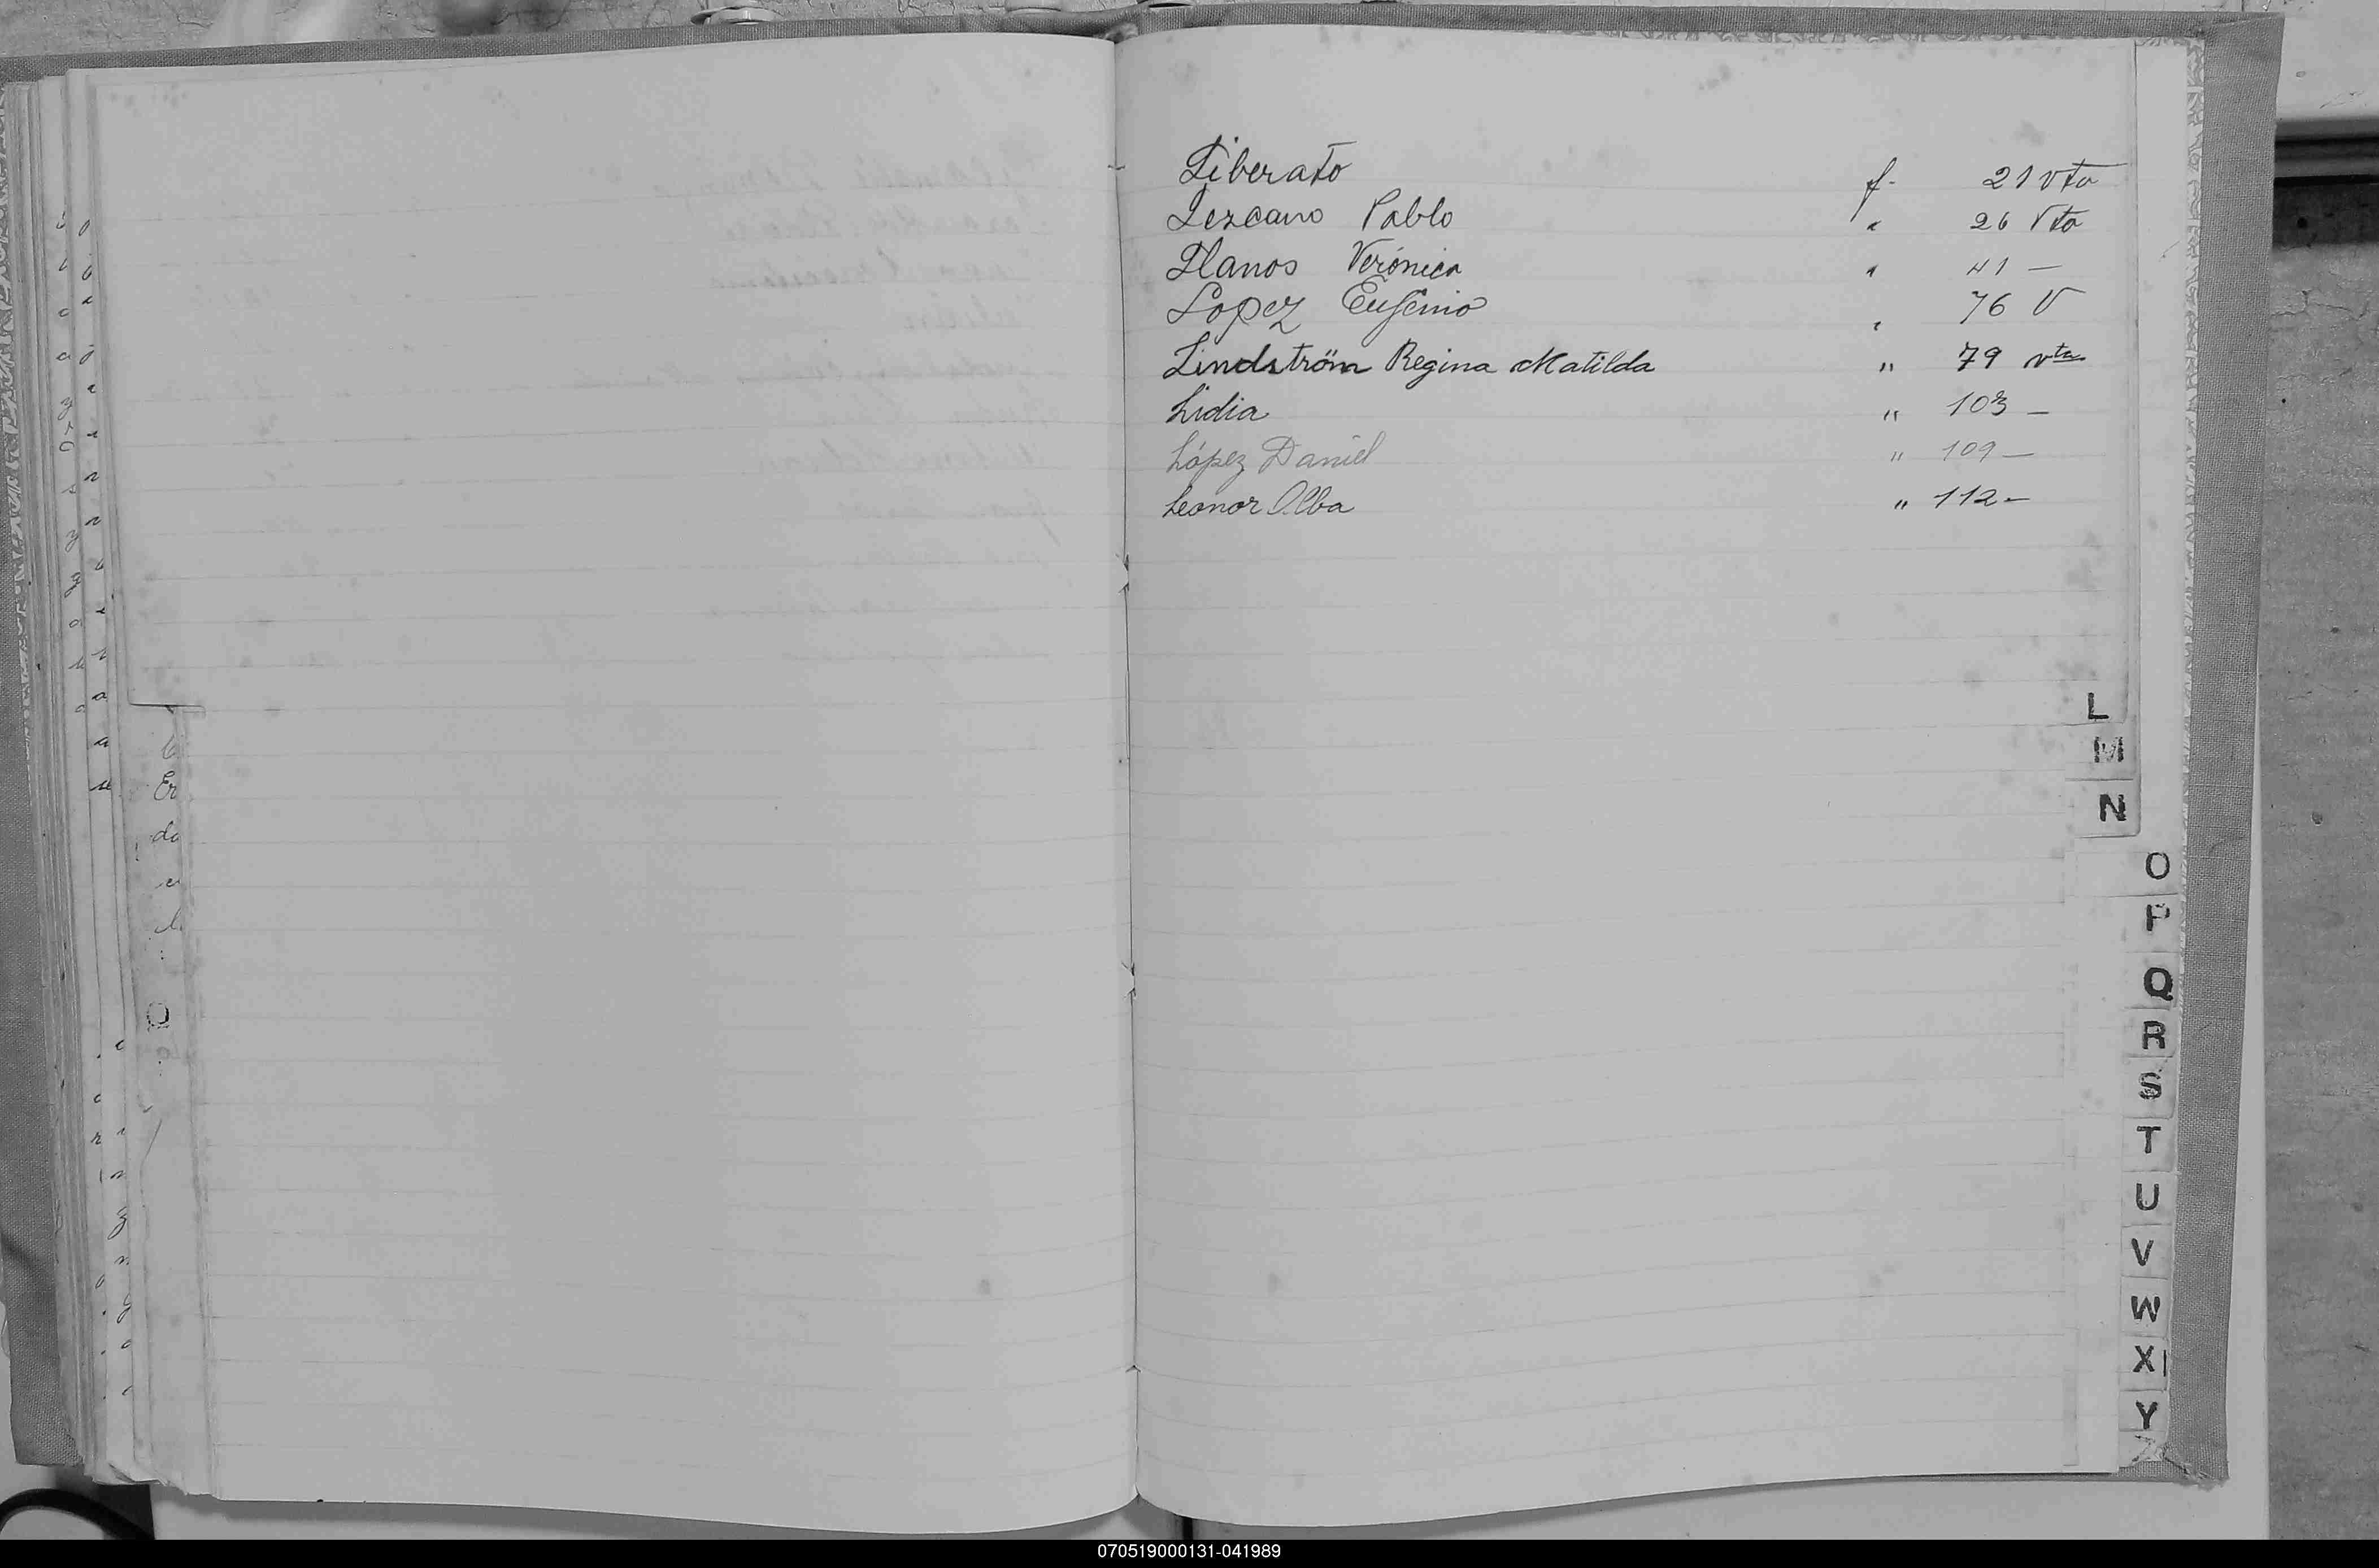 Liberato f. 21 vta
Lezcano Pablo " 26 Vta
Llanos Verónica " 41 —
Lopez Eugenio " 76 V
Lindström Regina Matilda " 79 vta
Lidia " 103 —
López Daniel " 109 —
Leonor Alba " 112 —
L
M
N
O
P
Q
R
S
T
U
V
W
X
Y
Z
070519000131-041989